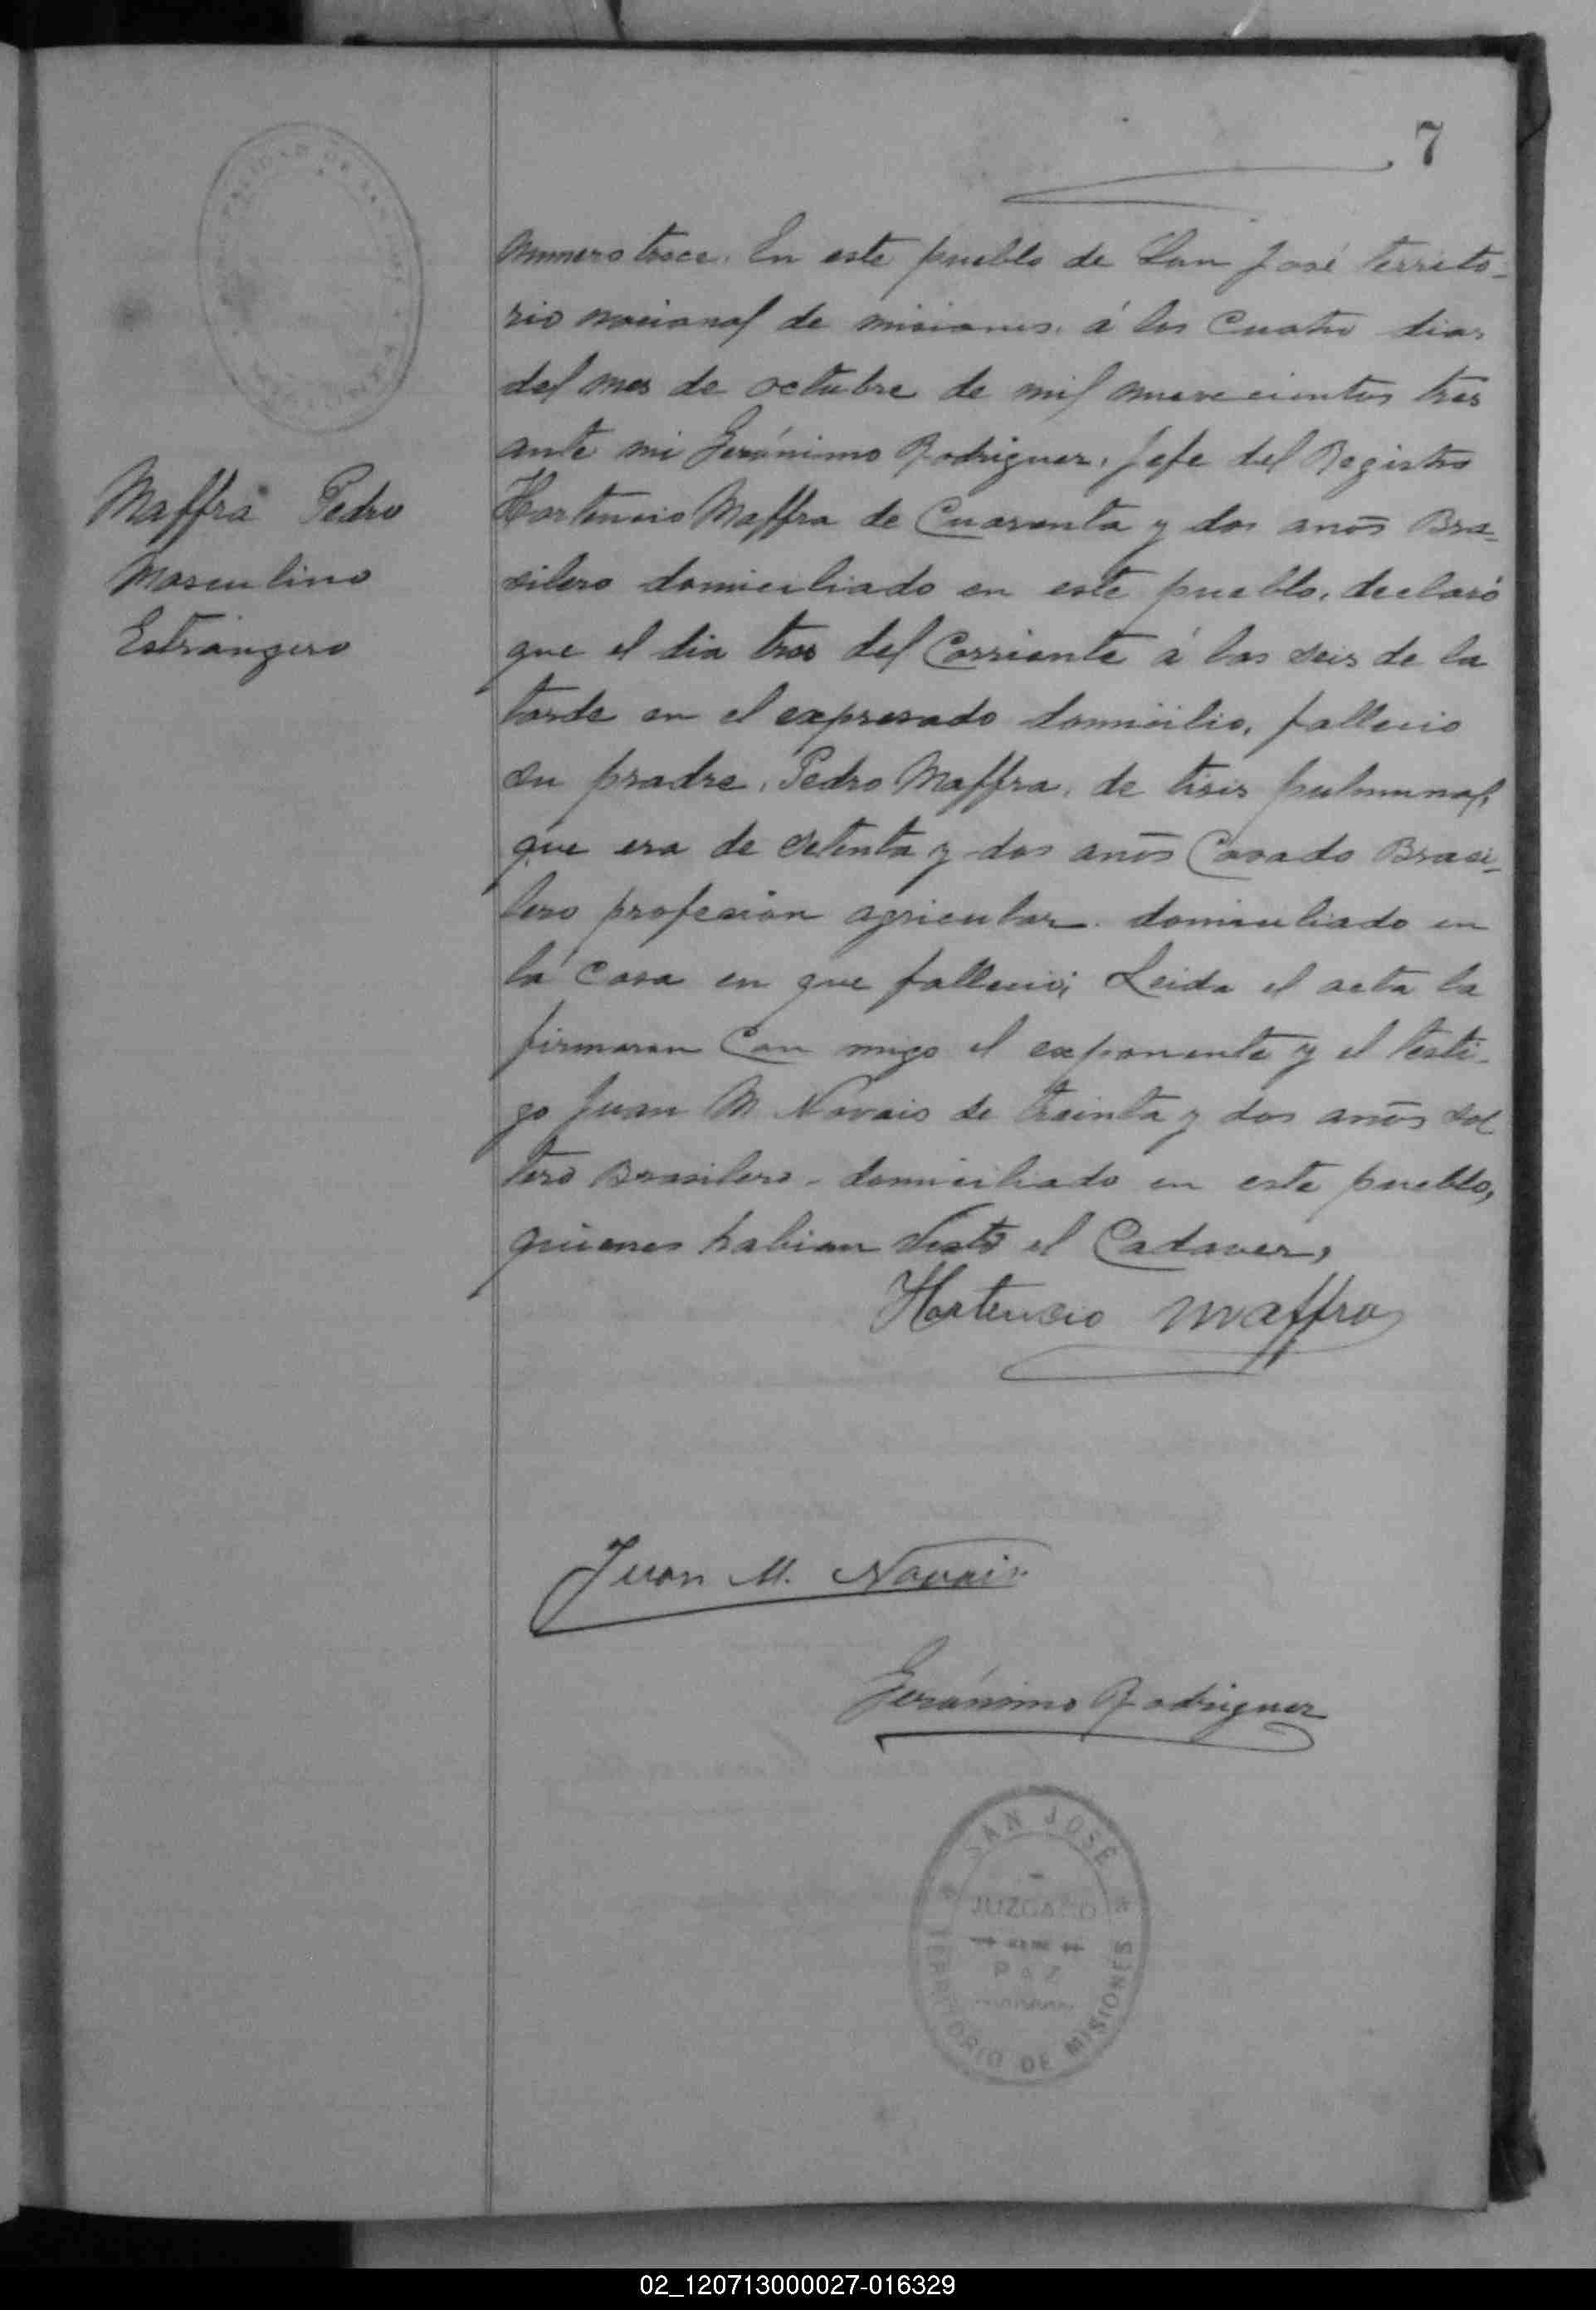 7
Numero trece. En este pueblo de San José territo-
rio nacional de misiones. á los Cuatro dias
del mes de octubre de mil nuevecientos tres
ante mi Gerónimo Rodriguez, Jefe del Registro
Maffra Pedro
Masculino
Estrangero
Hortencio Maffra de Cuarenta y dos anōs Bra-
silero domiciliado en este pueblo, declaró
que el dia tres del Corriente á las seis de la
tarde en el expresado domicilio, fallecio
su pradre, Pedro Maffra, de tisis pulmunal,
que era de setenta y dos anōs Casado Brasi-
lero profesion agricultor domiciliado en
la Casa en que fallecio; Leida el acta la
firmaron Con migo el exponente y el testi-
go Juan M Navais de treinta y dos anōs sol
tero Brasilero - domiciliado en este pueblo,
quienes habian visto el Cadaver,
Hortencio Maffra
Juan M. Navais
Gerónimo Rodriguez
SAN JOSÉ
JUZGADO
DE
PAZ
TERRITORIO DE MISIONES
02_120713000027-016329